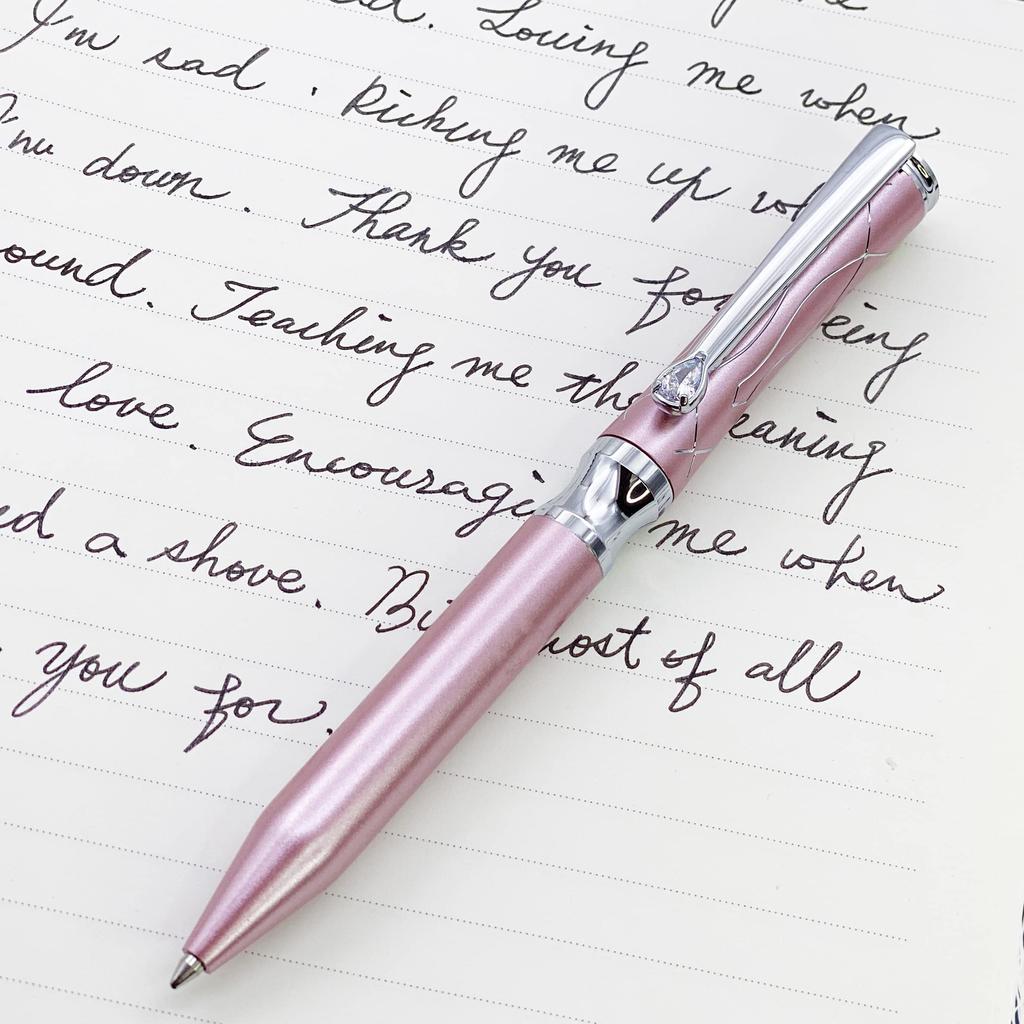 Loving me when
I'm sad. Picking me up
I'm down. Thank you for eing
ound. Teaching me the eaning
love. Encouragi me when
ed a shove. Bu most of all
you for.